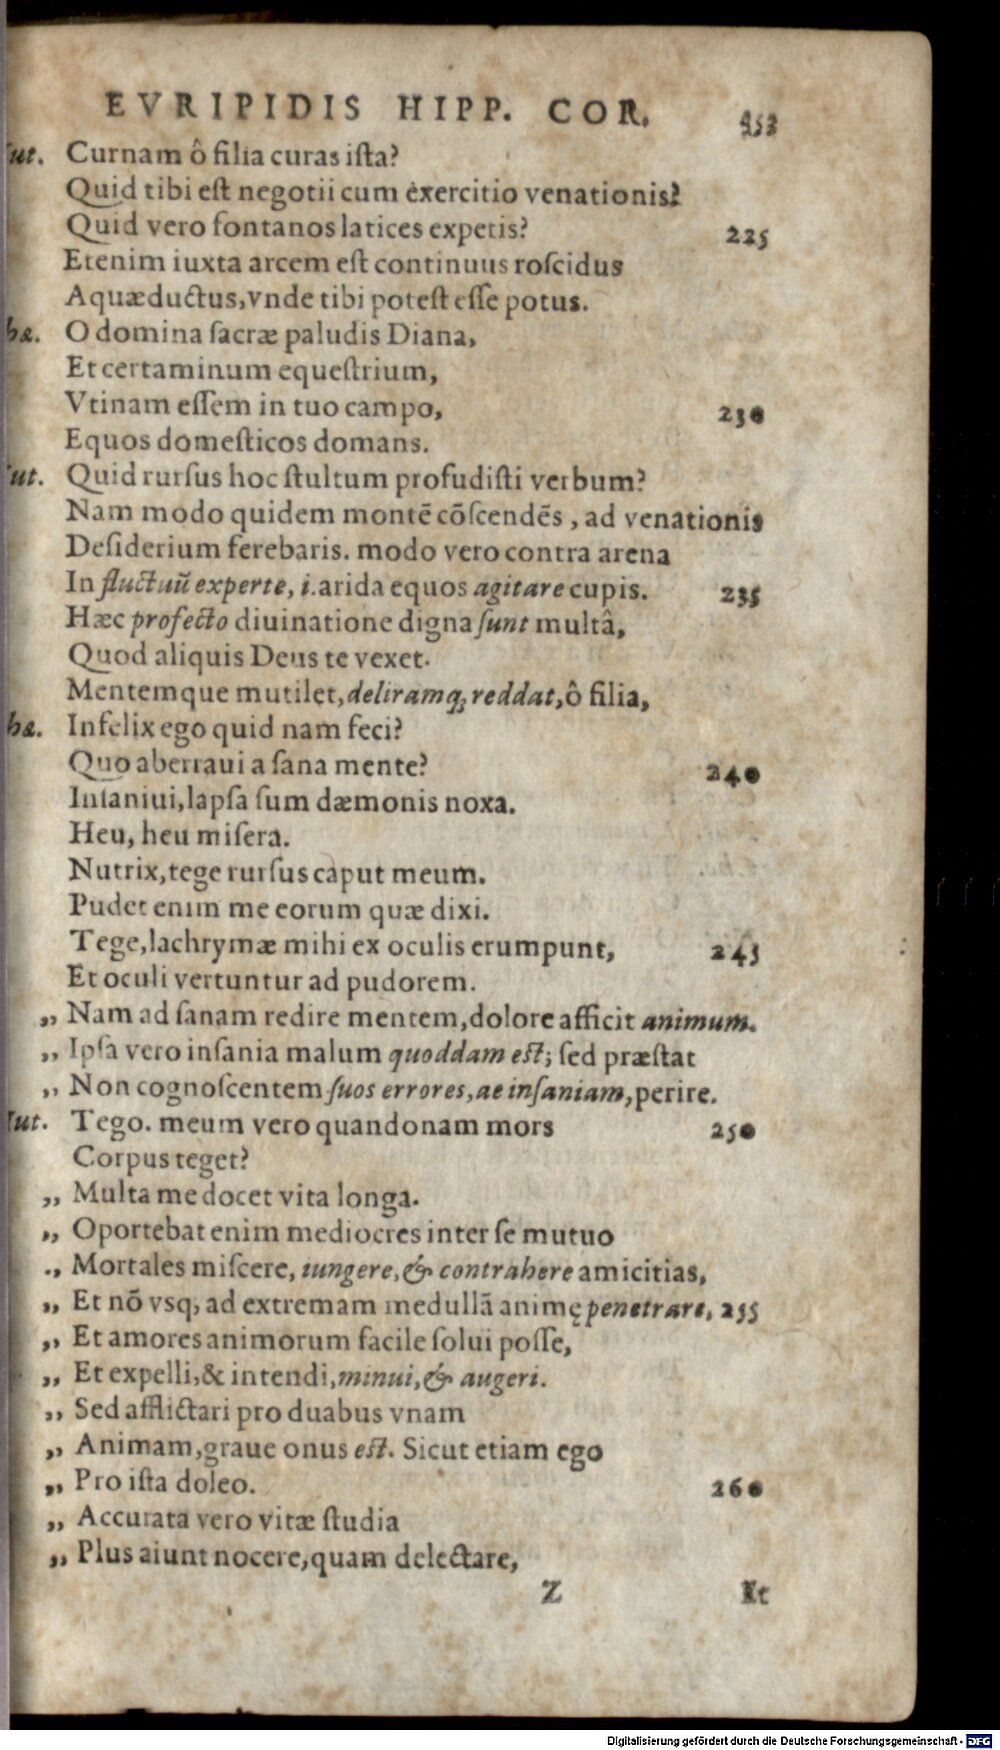 EVRIPIDIS HIPP. COR. 353
ut. Cur nam ô filia curas ista?
Quid tibi est negotii cum exercitio venationis?
Quid vero fontanos latices expetis? 225
Etenim iuxta arcem est continuus roscidus
Aquæductus, vnde tibi potest esse potus.
hæ. O domina sacræ paludis Diana,
Et certaminum equestrium,
Vtinam essem in tuo campo, 230
Equos domesticos domans.
ut. Quid rursus hoc stultum profudisti verbum?
Nam modo quidem montẽ cõscendẽs, ad venationis
Desiderium ferebaris. modo vero contra arena
In fluctuũ experte, i. arida equos agitare cupis. 235
Hæc profecto diuinatione digna sunt multâ,
Quod aliquis Deus te vexet.
Mentemque mutilet, deliramq; reddat, ô filia,
hæ. Infelix ego quid nam feci?
Quo aberraui a sana mente? 240
Insaniui, lapsa sum dæmonis noxa.
Heu, heu misera.
Nutrix, tege rursus caput meum.
Pudet enim me eorum quæ dixi.
Tege, lachrymæ mihi ex oculis erumpunt, 245
Et oculi vertuntur ad pudorem.
„ Nam ad sanam redire mentem, dolore afficit animum.
„ Ipsa vero insania malum quoddam est; sed præstat
„ Non cognoscentem suos errores, ac insaniam, perire.
ut. Tego. meum vero quandonam mors 250
Corpus teget?
„ Multa me docet vita longa.
„ Oportebat enim mediocres inter se mutuo
„ Mortales miscere, iungere, & contrahere amicitias,
„ Et nõ vsq; ad extremam medullã animę penetrare, 255
„ Et amores animorum facile solui posse,
„ Et expelli, & intendi, minui, & augeri.
„ Sed afflictari pro duabus vnam
„ Animam, graue onus est. Sicut etiam ego
„ Pro ista doleo. 260
„ Accurata vero vitæ studia
„ Plus aiunt nocere, quam delectare,
Z Et
Digitalisierung gefördert durch die Deutsche Forschungsgemeinschaft - DFG